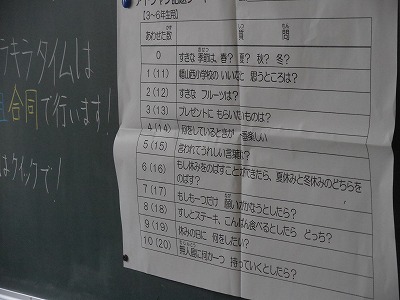 ラキラタイムは
合同で行います!
はクイックで!
【3～6年生用】
あわせた数 質問
0 すきな 季節は、春? 夏? 秋? 冬?
1 (11) 山西小学校の いいなと 思うところは?
2 (12) すきな フルーツは?
3 (13) プレゼントに もらいたいものは?
4 (14) 何をしているときが 一番楽しい
5 (15) 言われてうれしい言葉は?
6 (16) もし休みをのばすことができたら、夏休みと冬休みのどちらを
のばす?
7 (17) もしも一つだけ 願いがかなうとしたら?
8 (18) すしとステーキ、こんばん食べるとしたら どっち?
9 (19) 休みの日に 何をしたい?
10 (20) 無人島に何か一つ 持っていくとしたら?